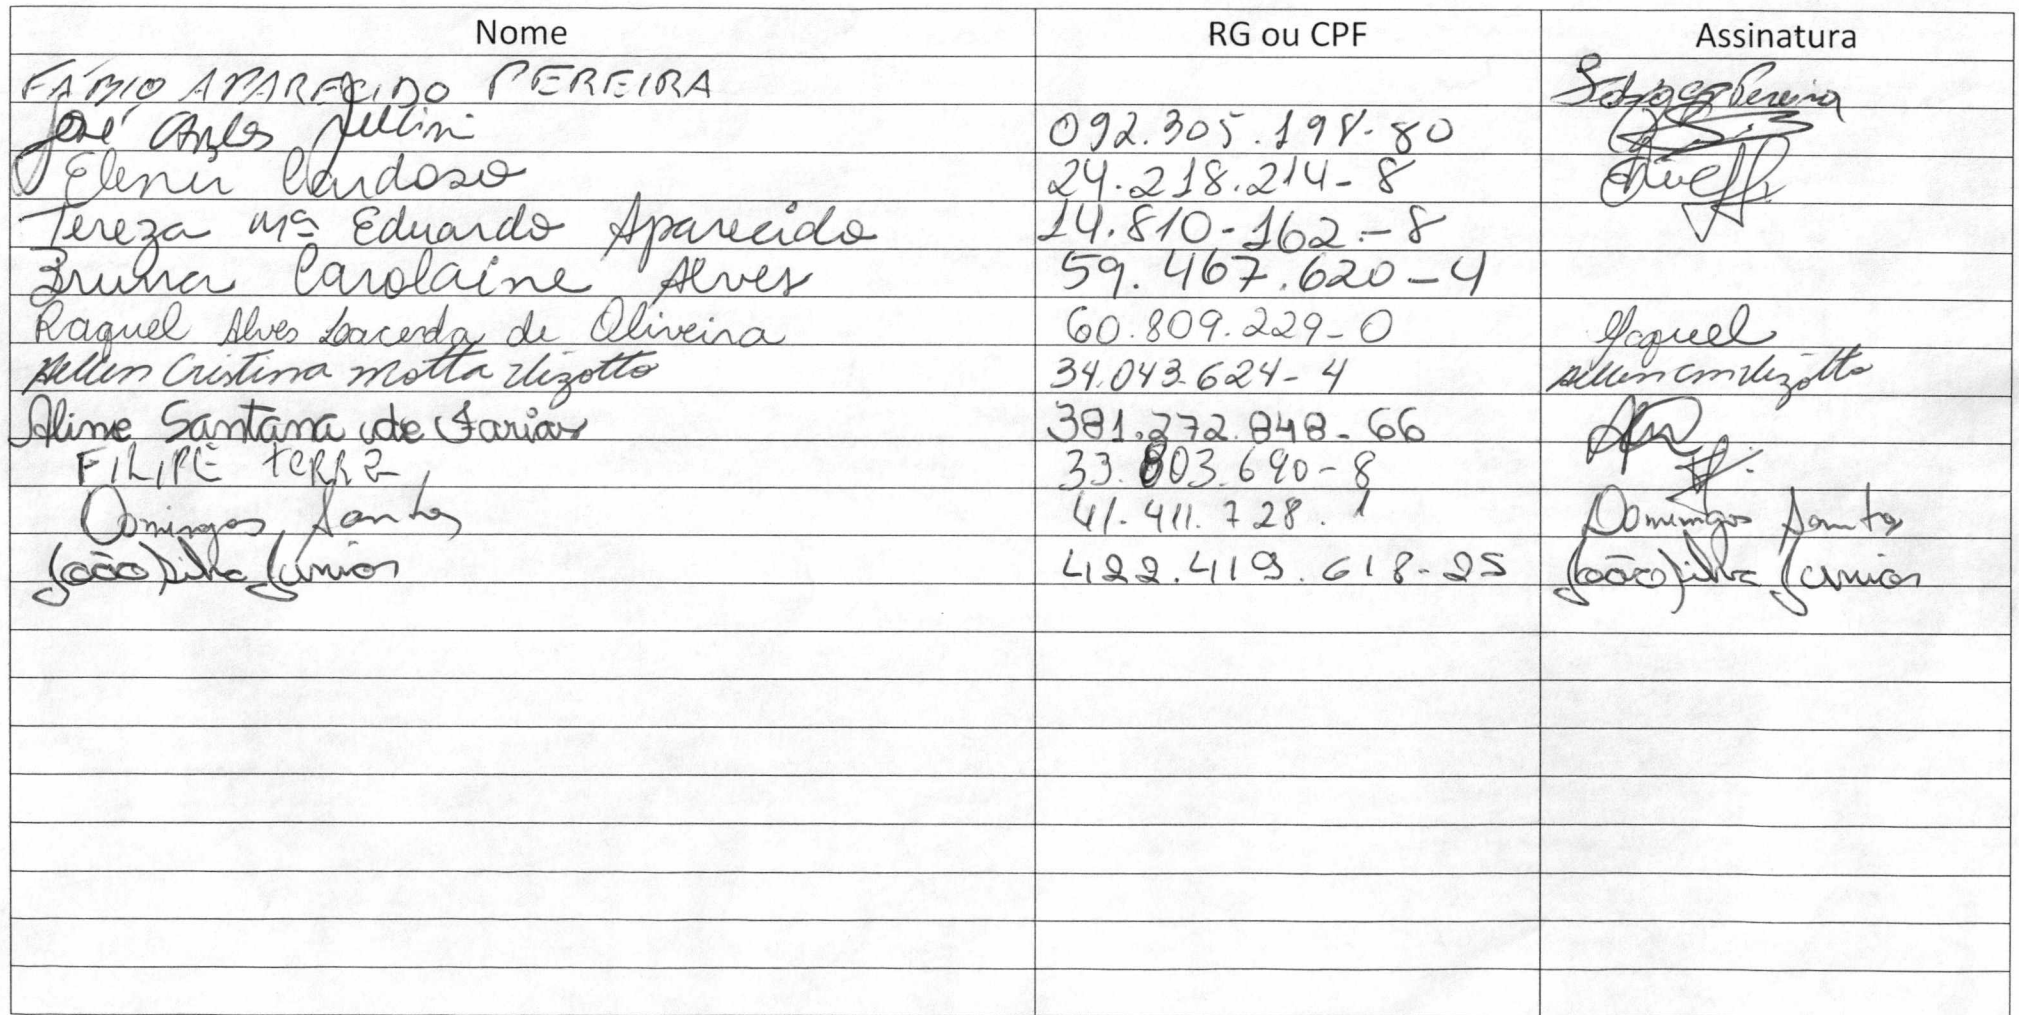 Nome RG ou CPF Assinatura
FÁBIO APARECIDO PEREIRA Pereira
José Carlos 092.305.198-80
Elenir Cardoso 24.218.214-8
Tereza Mª Eduardo Aparecido 14.810-162-8
Bruna Carolaine Alves 59.467.620-4
Raquel Alves Lacerda de Oliveira 60.809.229-0 Raquel
Hellen Cristina Motta Vizotto 34.043.624-4
Aline Santana de Farias 381.272.848-66
FILIPE TERRA 33.803.690-8
Domingos Santos 41.411.728.1 Domingos Santos
João Silva Junior 422.419.618-25 João Silva Junior